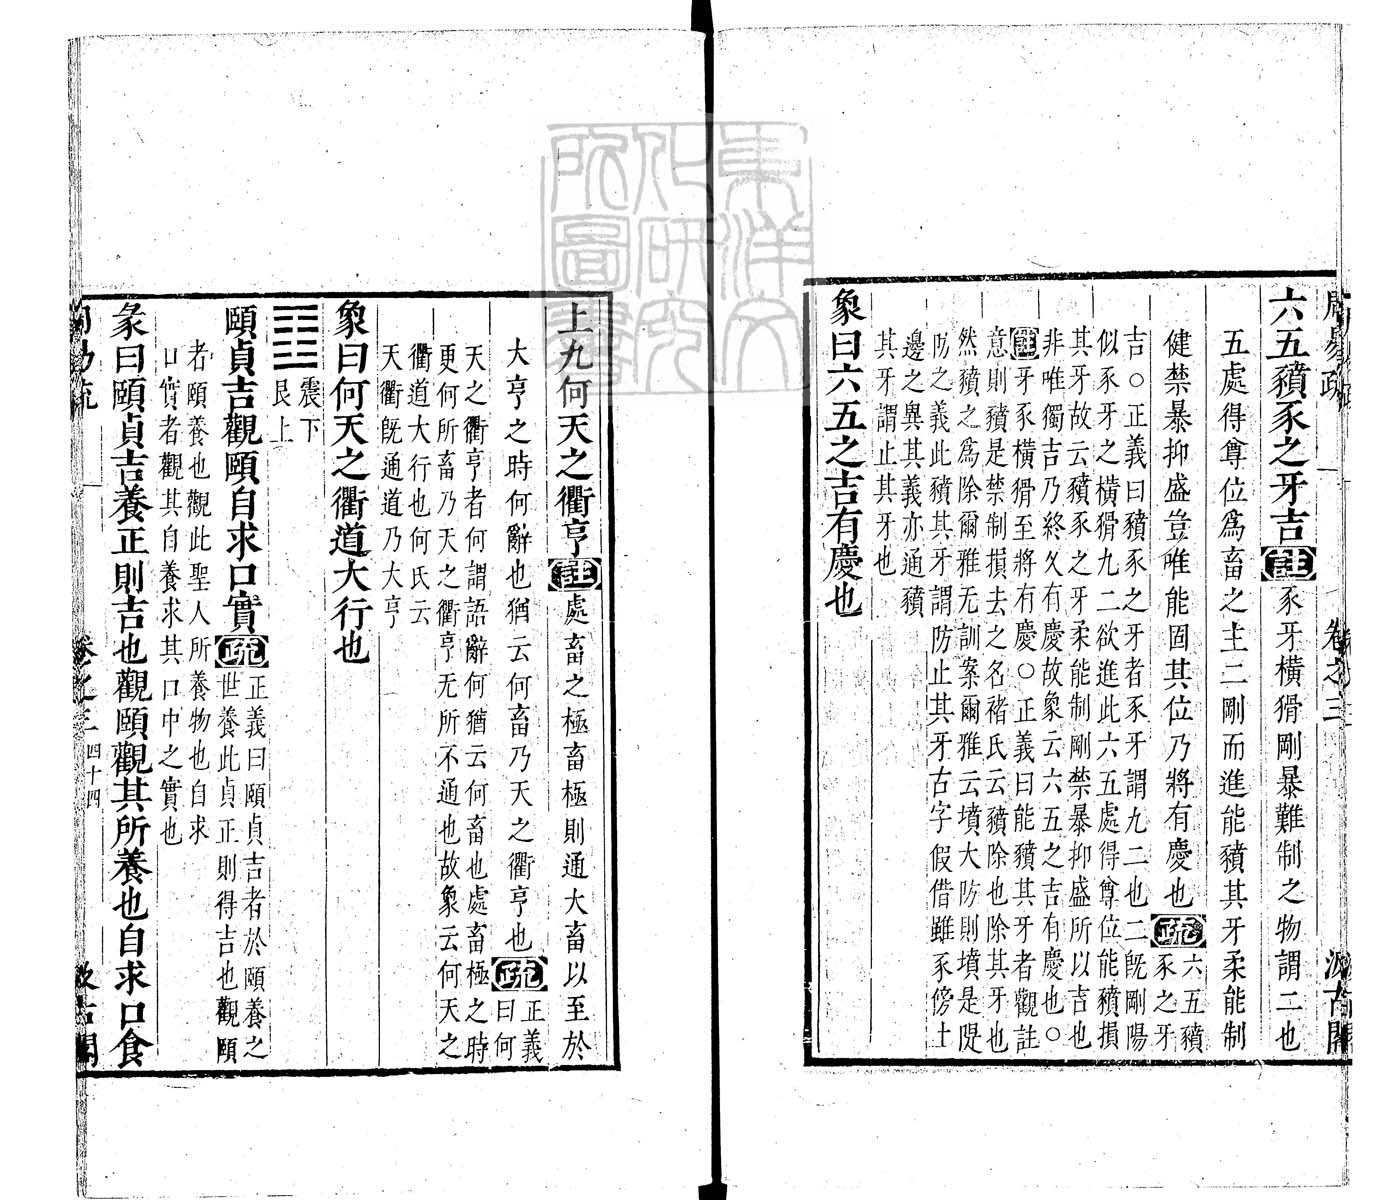 周易疏 卷之三 汲古閣
六五豶豕之牙吉註豕牙橫猾剛暴難制之物謂二也
五處得尊位爲畜之主二剛而進能豶其牙柔能制
健禁暴抑盛豈唯能固其位乃將有慶也疏六五豶
豕之牙
吉○正義曰豶豕之牙者豕牙謂九二也二旣剛陽
似豕牙之橫猾九二欲進此六五處得尊位能豶損
其牙故云豶豕之牙柔能制剛禁暴抑盛所以吉也
非唯獨吉乃終久有慶故象云六五之吉有慶也○
註豕牙橫猾至將有慶○正義曰能豶其牙者觀註
意則豶是禁制損去之名褚氏云豶除也除其牙也
然豶之爲除爾雅无訓案爾雅云墳大防則墳是隄
防之義此豶其牙謂防止其牙古字假借雖豕傍土
邊之異其義亦通豶
其牙謂止其牙也
象曰六五之吉有慶也
上九何天之衢亨註處畜之極畜極則通大畜以至於
大亨之時何辭也猶云何畜乃天之衢亨也疏正義
曰何
天之衢亨者何謂語辭何猶云何畜也處畜極之時
更何所畜乃天之衢亨无所不通也故象云何天之
衢道大行也何氏云
天衢旣通道乃大亨
象曰何天之衢道大行也
震下
艮上
頤貞吉觀頤自求口實疏正義曰頤貞吉者於頤養之
世養此貞正則得吉也觀頤
者頤養也觀此聖人所養物也自求
口實者觀其自養求其口中之實也
彖曰頤貞吉養正則吉也觀頤觀其所養也自求口食
卷之三 四十四 汲古閣
東洋文
化研究
所圖書